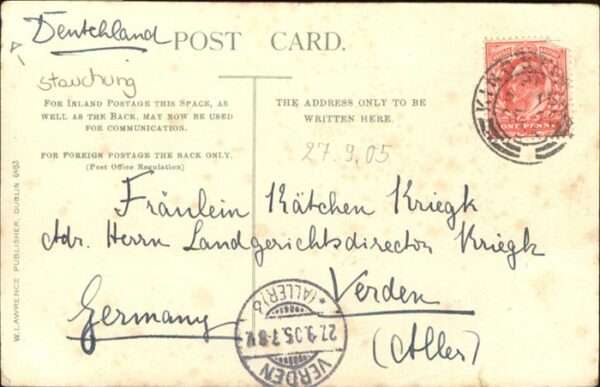 Deutchland
POST CARD.
Stauchung
FOR INLAND POSTAGE THIS SPACE, AS
WELL AS THE BACK, MAY NOW BE USED
FOR COMMUNICATION.
FOR FOREIGN POSTAGE THE BACK ONLY.
(Post Office Regulation)
THE ADDRESS ONLY TO BE
WRITTEN HERE.
ONE PENNY
27.9.05
Fräulein Kätchen Kriegk
Adr. Herrn Landgerichtsdirector Kriegk
Verden
Germany
(Aller)
VERDEN
*(ALLER)b
27.9.05.7-8V.
W. LAWRENCE PUBLISHER, DUBLIN